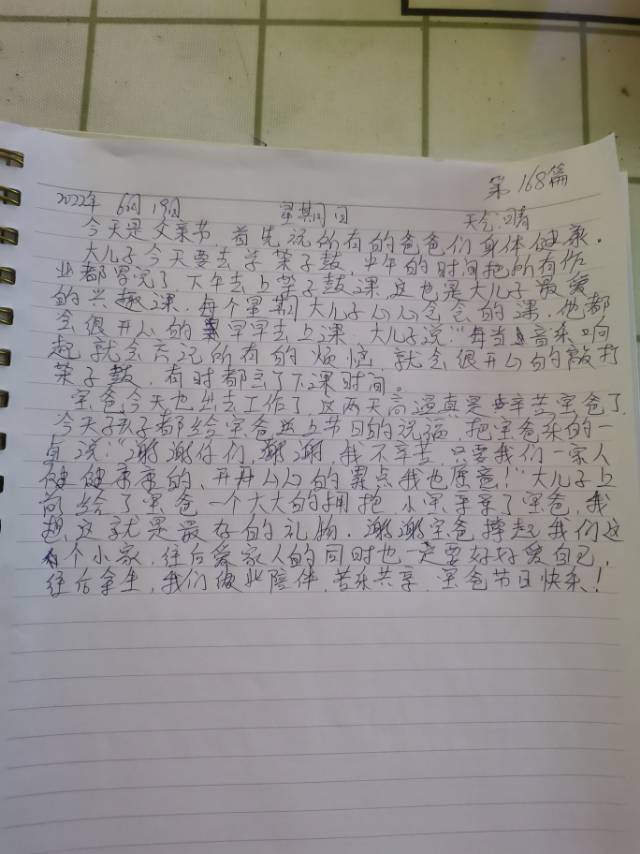 第168篇
2022年 6月19日 星期日 天气:晴
今天是父亲节,首先祝所有的爸爸们身体健康。
大儿子今天要去学架子鼓,上午的时间把所有作
业都写完了,下午去上架子鼓课,这也是大儿子最爱
的兴趣课,每个星期大儿子心心念念的课,他都
会很开心的早早去上课,大儿子说:“每当音乐响
起就会忘记所有的烦恼,就会很开心的敲打
架子鼓,有时都忘了下课时间。
宝爸今天也出去工作了,这两天高温真是辛苦宝爸了,
今天孩子都给宝爸送上节日的祝福,把宝爸乐的一
直说:“谢谢仔们,谢谢,我不辛苦,只要我们一家人
健健康康的,开开心心的累点我也愿意!”大儿子上
前给了宝爸一个大大的拥抱,小宝亲亲了宝爸,我
想这就是最好的礼物,谢谢宝爸撑起我们这
个小家,往后爱家人的同时也一定要好好爱自己,
往后余生,我们彼此陪伴,苦乐共享,宝爸节日快乐!